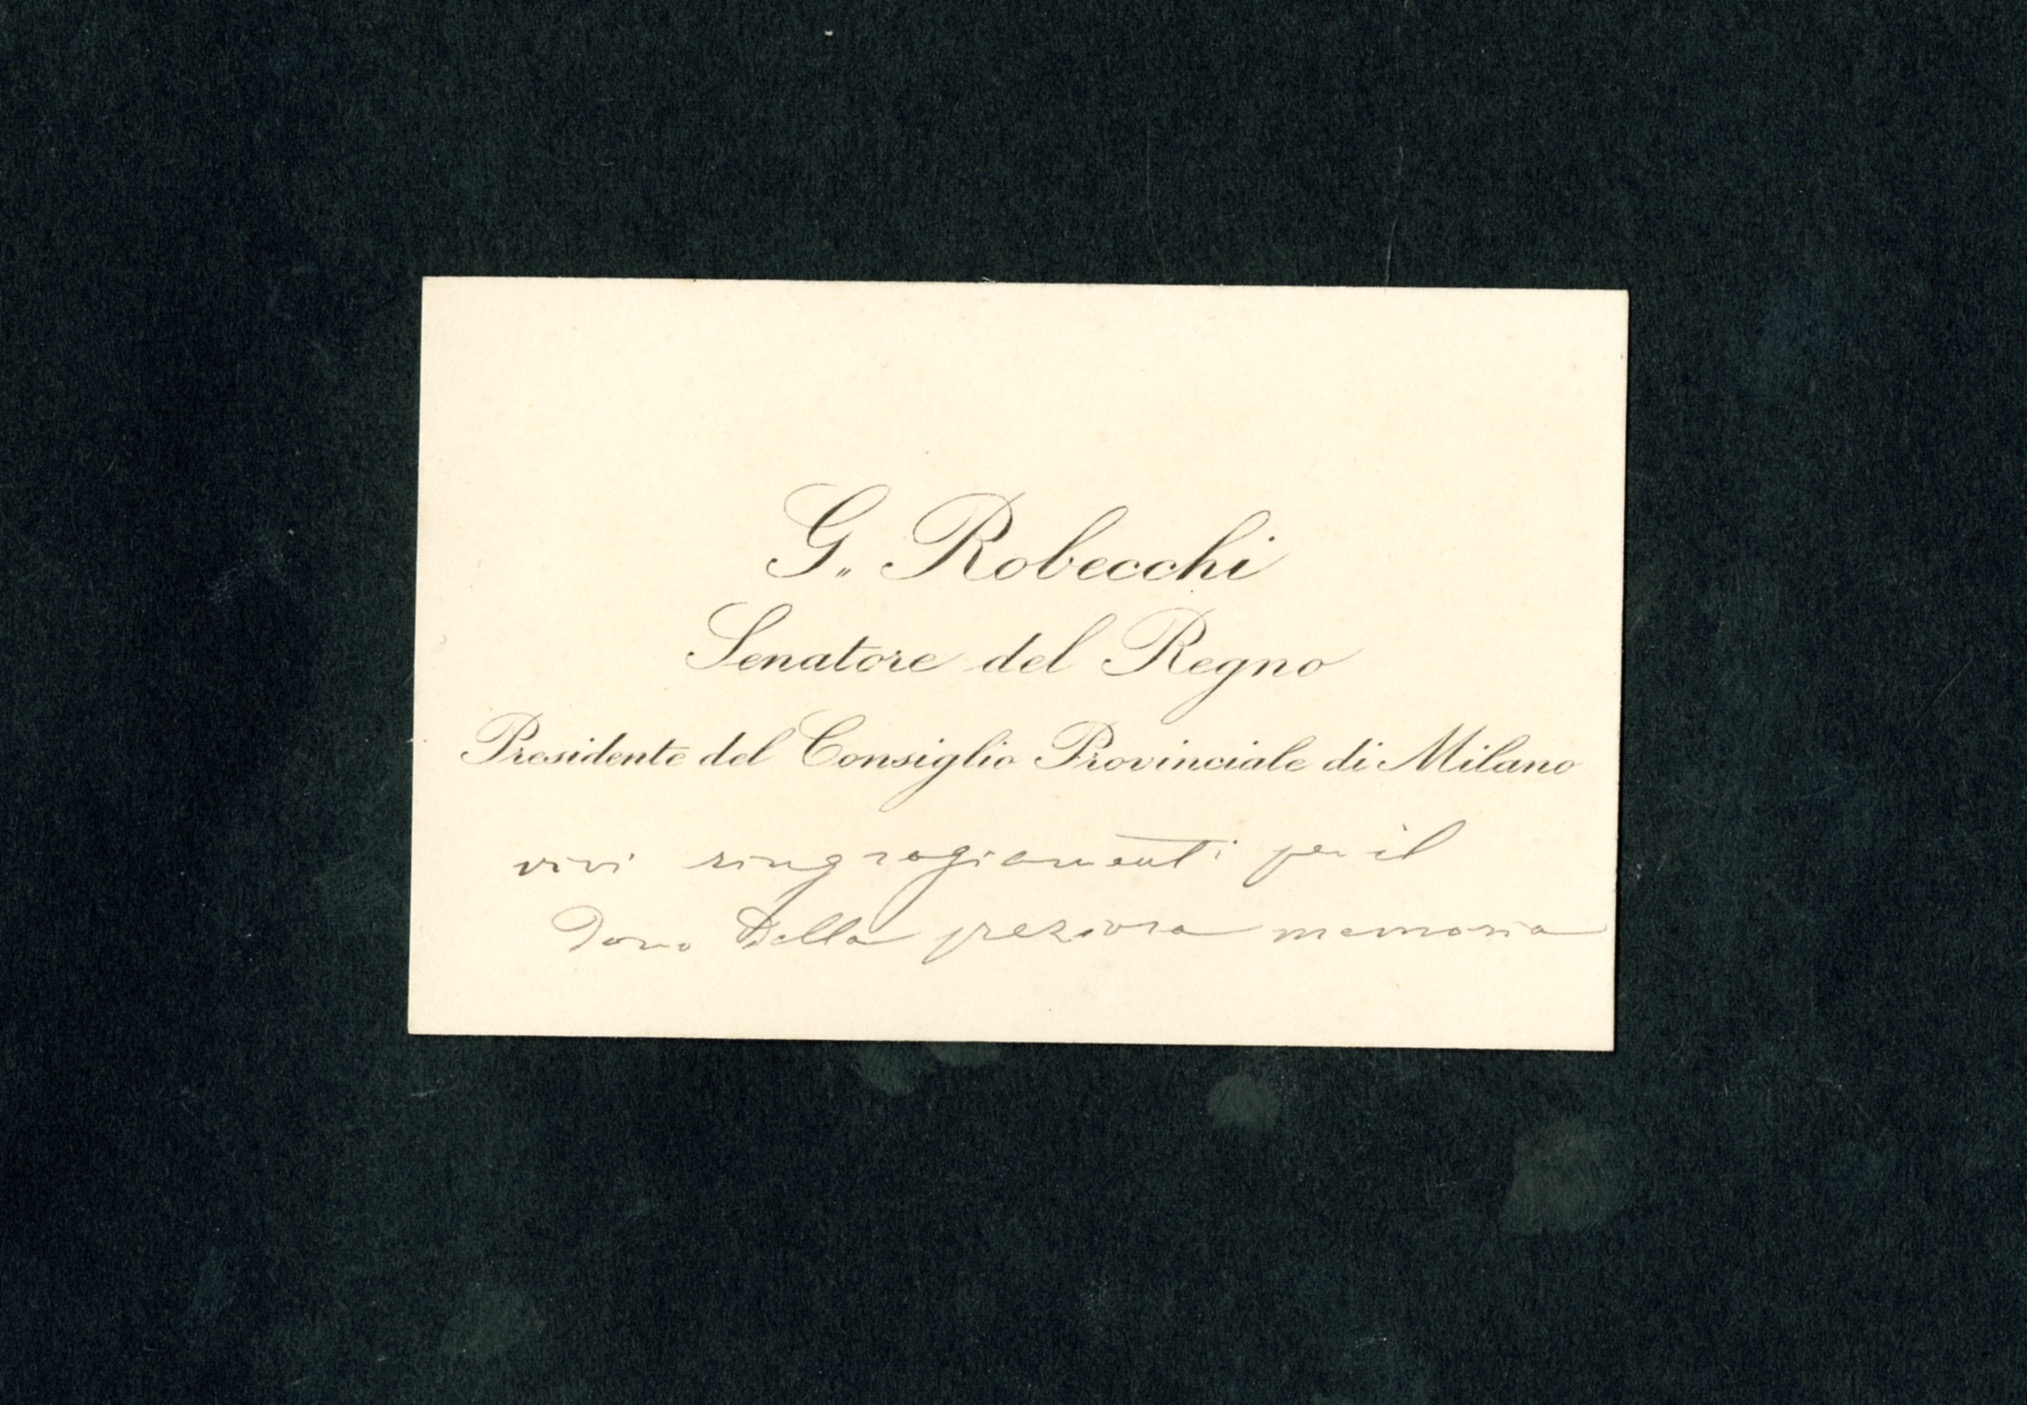 G. Robecchi
Senatore del Regno
Presidente del Consiglio Provinciale di Milano
vivi ringragiamenti per il
Dono Della preziosa memoria